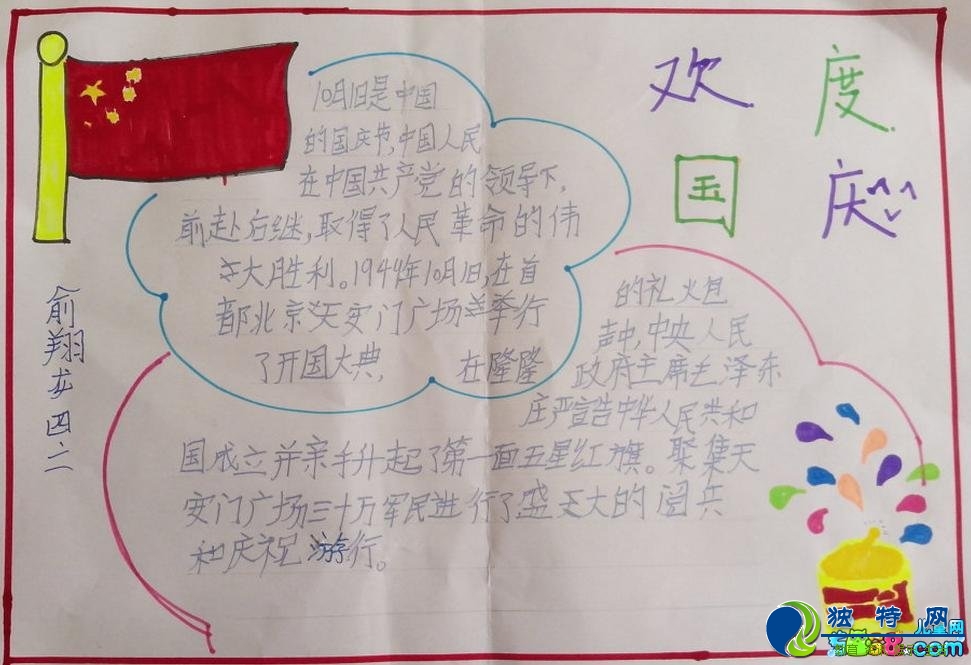 欢度
国庆
10月1日是中国
的国庆节,中国人民
在中国共产党的领导下,
前赴后继,取得了人民革命的伟
大胜利。1944年10月1日,在首
都北京天安门广场举行
了开国大典, 在隆隆
的礼火包
声中,中央人民
政府主席毛泽东
庄严宣告中华人民共和
国成立并亲手升起了第一面五星红旗。聚集天
安门广场三十万军民进行了盛大的阅兵
和庆祝游行。
俞翔龙四.二
独特网
儿童网
.com